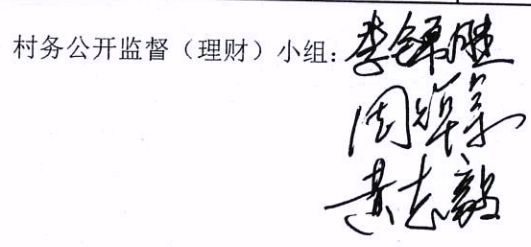 村务公开监督（理财）小组：李锦胜
周
黄志毅